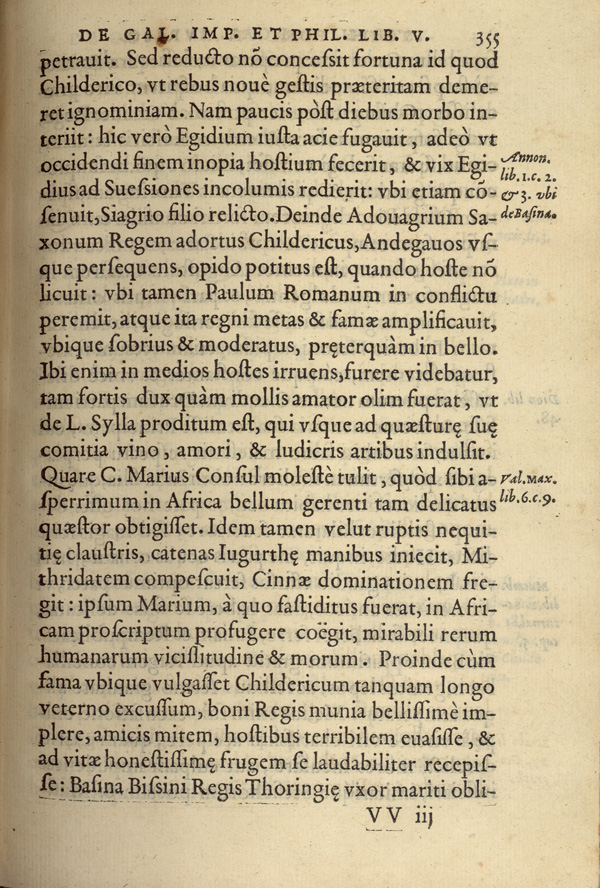 DE GAL. IMP. ET PHIL. LIB. V. 355
petrauit. Sed reducto nõ concessit fortuna id quod
Childerico, vt rebus nouè gestis præteritam deme-
ret ignominiam. Nam paucis pòst diebus morbo in-
teriit: hic verò Egidium iusta acie fugauit, adeò vt
occidendi finem inopia hostium fecerit, & vix Egi-
dius ad Suessiones incolumis redierit: vbi etiam cõ-
senuit, Siagrio filio relicto. Deinde Adouagrium Sa-
xonum Regem adortus Childericus, Andegauos vs-
que persequens, opido potitus est, quando hoste nõ
licuit: vbi tamen Paulum Romanum in conflictu
peremit, atque ita regni metas & famæ amplificauit,
vbique sobrius & moderatus, pręterquàm in bello.
Ibi enim in medios hostes irruens, furere videbatur,
tam fortis dux quàm mollis amator olim fuerat, vt
de L. Sylla proditum est, qui vsque ad quæsturę suę
comitia vino, amori, & ludicris artibus indulsit.
Quare C. Marius Consul molestè tulit, quòd sibi a-
sperrimum in Africa bellum gerenti tam delicatus
quæstor obtigisset. Idem tamen velut ruptis nequi-
tię claustris, catenas Iugurthę manibus iniecit, Mi-
thridatem compescuit, Cinnæ dominationem fre-
git: ipsum Marium, à quo fastiditus fuerat, in Afri-
cam proscriptum profugere coëgit, mirabili rerum
humanarum vicissitudine & morum. Proinde cùm
fama vbique vulgasset Childericum tanquam longo
veterno excussum, boni Regis munia bellissimè im-
plere, amicis mitem, hostibus terribilem euasisse, &
ad vitæ honestissimę frugem se laudabiliter recepis-
se: Basina Bissini Regis Thoringię vxor mariti obli-
VV iij
Annon.
lib. 1. c. 2.
& 3. vbi
de Basina.
Val. Max.
lib. 6. c. 9.